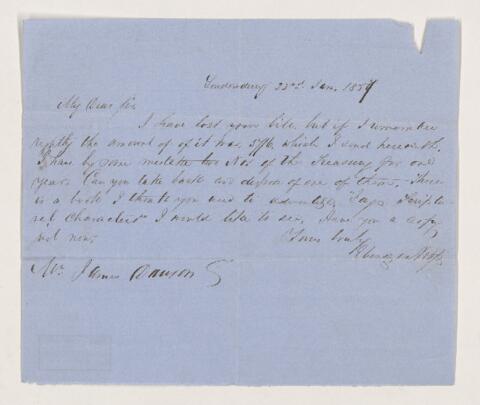 Londonderry 23rd Jan. 1857
My Dear Sir
I have lost your bill but if I remember
rightly the amount of it was 5/6. which I send herewith.
I have by some mistake two Nos of the Treasury for one
year. Can you take back and dispose of one of them. There
is a book I think you used to advertize, Gages Scriptu-
ral Characters I would like to see. Have you a copy
just now.
Yours truly
Ebenezer
Mr. James Dawson